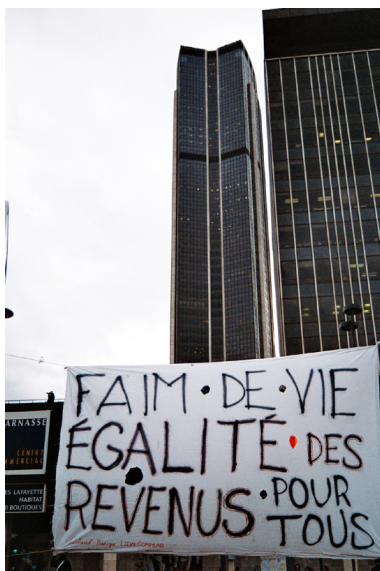 FAIM • DE • VIE
ÉGALITÉ • DES
REVENUS • POUR
TOUS
ARNASSE
CENTRE
MMERCIAL
ES LAFAYETTE
HABITAT
BOUTIQUES